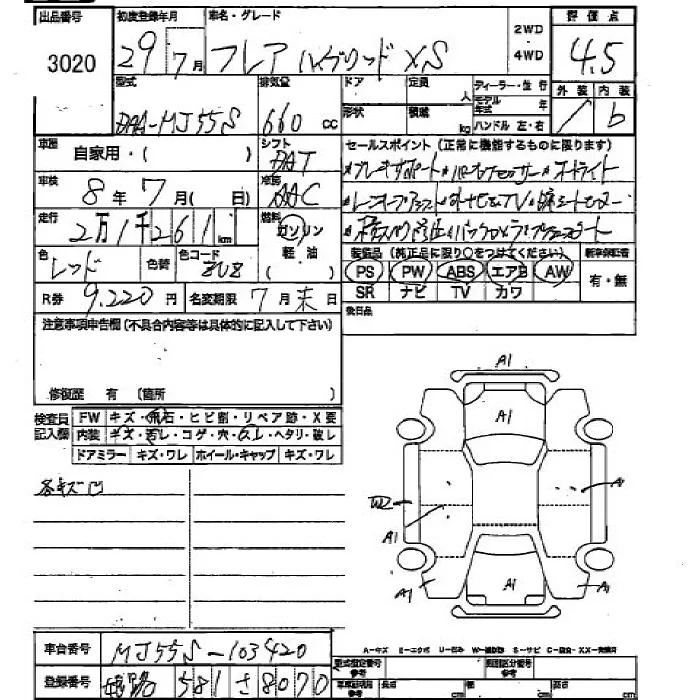 出品番号 初度登録年月 車名・グレード 2WD ・ 4WD 評価点
3020 29 7月 フレア ハイブリッド XS 4.5
型式 排気量 ドア 定員 人 ディーラー・並行 外装 内装
形状 積載 kg モデル年式 年
DAA-MJ55S 660 cc ハンドル 左・右 b
車歴 自家用・( ) シフト DAT セールスポイント(正常に機能するものに限ります)
車検 8年 7月( 日) 冷房 AAC
走行 2万1千261km 燃料 ガソリン 軽油
色 レッド 色替 色コード 装備品(純正品に限り○をつけてください) 新車保証書
PS PW ABS エアB AW 有・無
R券 9.220円 名変期限 7月末日 SR ナビ TV カワ
注意事項申告欄(不具合内容等は具体的に記入して下さい) 後日品
修復歴 有 (箇所 )
検査員記入欄 FW キズ・飛石・ヒビ割・リペア跡・X要
内装 キズ・汚レ・コゲ・穴・スレ・ヘタリ・破レ
ドアミラー キズ・ワレ ホイール・キャップ キズ・ワレ
各キズ凹
A1
A1
A
W2
A1
A1
A1
A1
A-キズ E-エクボ U-凹み W-補修跡 S-サビ C-腐食 XX-交換済
車台番号 MJ55S-103420 型式指定番号 参考 類別区分番号 参考
登録番号 姫路 581 さ 8070 車庫証明用 参考 長さ cm 幅 cm 高さ cm